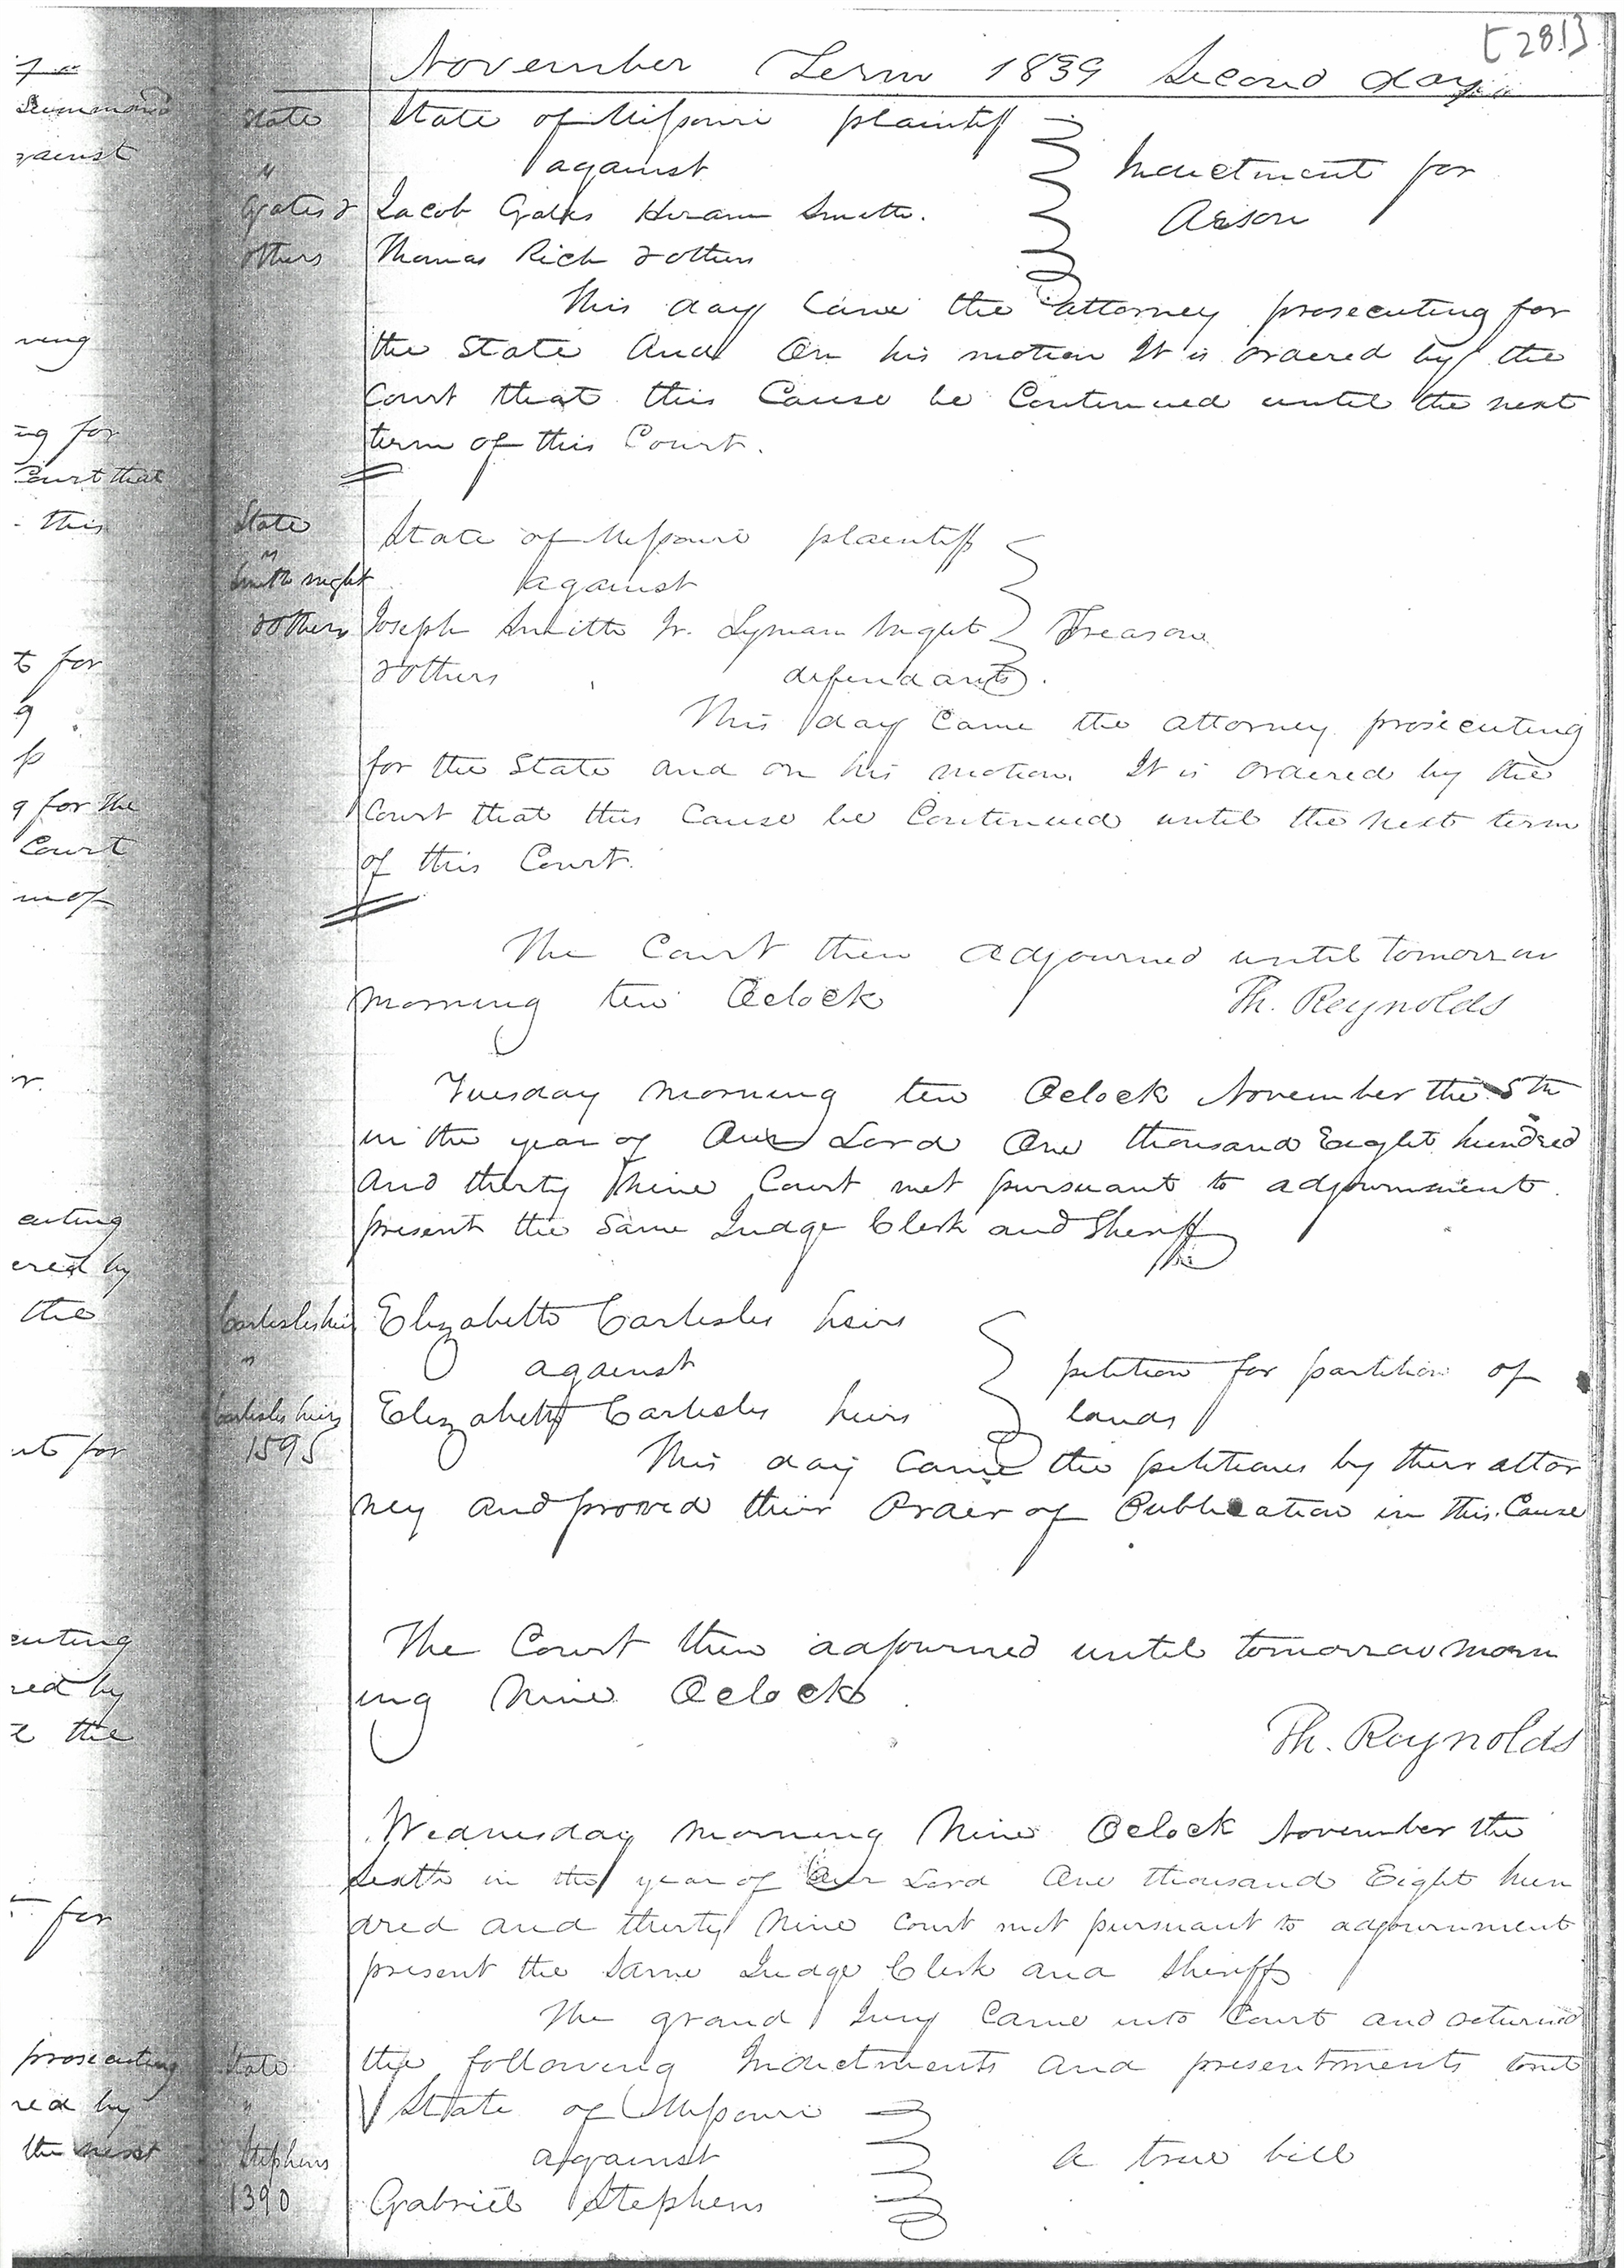 [281]
November Term 1839 Second day
State State of Missouri plaintiff
" against Indictment for
Gates & Jacob Gates Hiram Smith. Arson
others Thomas Rich & others
This day came the attorney prosecuting for
the State And On his motion It is ordered by the
Court that this Cause be Continued until the next
term of this Court.
State State of Missouri plaintiff
" against
Smith night
& others Joseph Smith Jr. Lyman Night Treason
& others defendants.
This day Came the attorney prosecuting
for the State and on his motion. It is ordered by the
Court that this Cause be Continued until the next term
of this Court.
The Court then adjourned until tomorrow
morning ten Oclock Th. Reynolds
Tuesday morning ten Oclock November the 5th
in the year of Our Lord One thousand Eight hundred
And thirty Nine Court met pursuant to adjournment.
present the Same Judge Clerk and Sheriff
Carlisles heirs Elizabeth Carlisles heirs
" against petition for partition of
Carlisles heirs Elizabeth Carlisles heirs lands
1595 This day came the petitioners by their attor
ney and proved their Order of Publication in this Cause
The Court then adjourned until tomorrow morn
ing Nine Oclock
Th. Reynolds
Wednesday morning Nine Oclock November the
Sixth in the year of Our Lord One thousand Eight hun
dred and thirty Nine Court met pursuant to adjournment
present the Same Judge Clerk and Sheriff
The grand Jury Came into Court and returned
State the following Indictments and presentments towit
" State of Missouri
Stephens against a true bill
1390 Gabriel Stephens